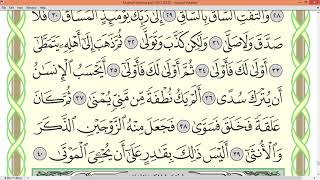 ٢٨ وَٱلْتَفَّتِ ٱلسَّاقُ بِٱلسَّاقِ ٢٩ إِلَىٰ رَبِّكَ يَوْمَئِذٍ ٱلْمَسَاقُ ٣٠ فَلَا
صَدَّقَ وَلَا صَلَّىٰ ٣١ وَلَٰكِن كَذَّبَ وَتَوَلَّىٰ ٣٢ ثُمَّ ذَهَبَ إِلَىٰٓ أَهْلِهِۦ يَتَمَطَّىٰٓ
٣٣ أَوْلَىٰ لَكَ فَأَوْلَىٰ ٣٤ ثُمَّ أَوْلَىٰ لَكَ فَأَوْلَىٰٓ ٣٥ أَيَحْسَبُ ٱلْإِنسَٰنُ
أَن يُتْرَكَ سُدًى ٣٦ أَلَمْ يَكُ نُطْفَةً مِّن مَّنِىٍّ يُمْنَىٰ ٣٧ ثُمَّ كَانَ
عَلَقَةً فَخَلَقَ فَسَوَّىٰ ٣٨ فَجَعَلَ مِنْهُ ٱلزَّوْجَيْنِ ٱلذَّكَرَ
وَٱلْأُنثَىٰٓ ٣٩ أَلَيْسَ ذَٰلِكَ بِقَٰدِرٍ عَلَىٰٓ أَن يُحْـِۧىَ ٱلْمَوْتَىٰ ٤٠